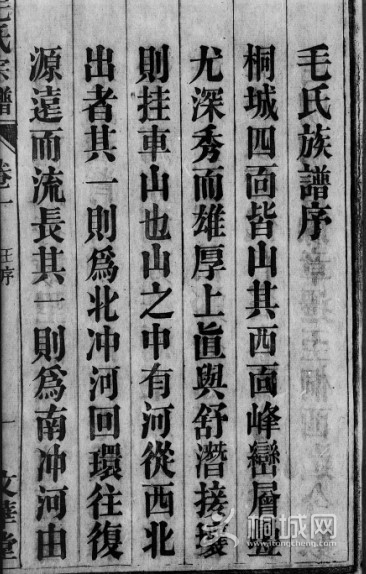 毛氏族譜序
桐城四面皆山其西面峰巒層疊
尤深秀而雄厚上直與舒潛接壤
則挂車山也山之中有河從西北
出者其一則爲北冲河回環往復
源遠而流長其一則爲南冲河由
毛氏宗譜 卷一 王序 一 文華堂
桐城网
www.itongcheng.com